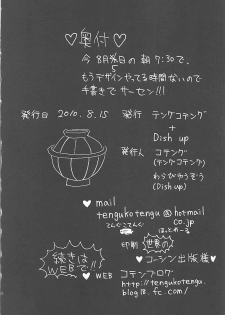 ♡奥付♡
今8月5日の朝7:30で、
もうデザインやってる時間ないので
手書きでサーセン!!!
発行日 2010.8.15 発行 テングコテング
+
Dish up
発行人 コテング
(テングコテング)
わらびもちぞう
(Dish up)
♡mail
tengukotengu@hotmail
てんぐこてんぐ ほっとめーる
co.jp
印刷 世界の
コーシン出版様♡
続きは
WEBで!!
♡WEB コテンブログ
http://tengukotengu.
blog18.fc.com/